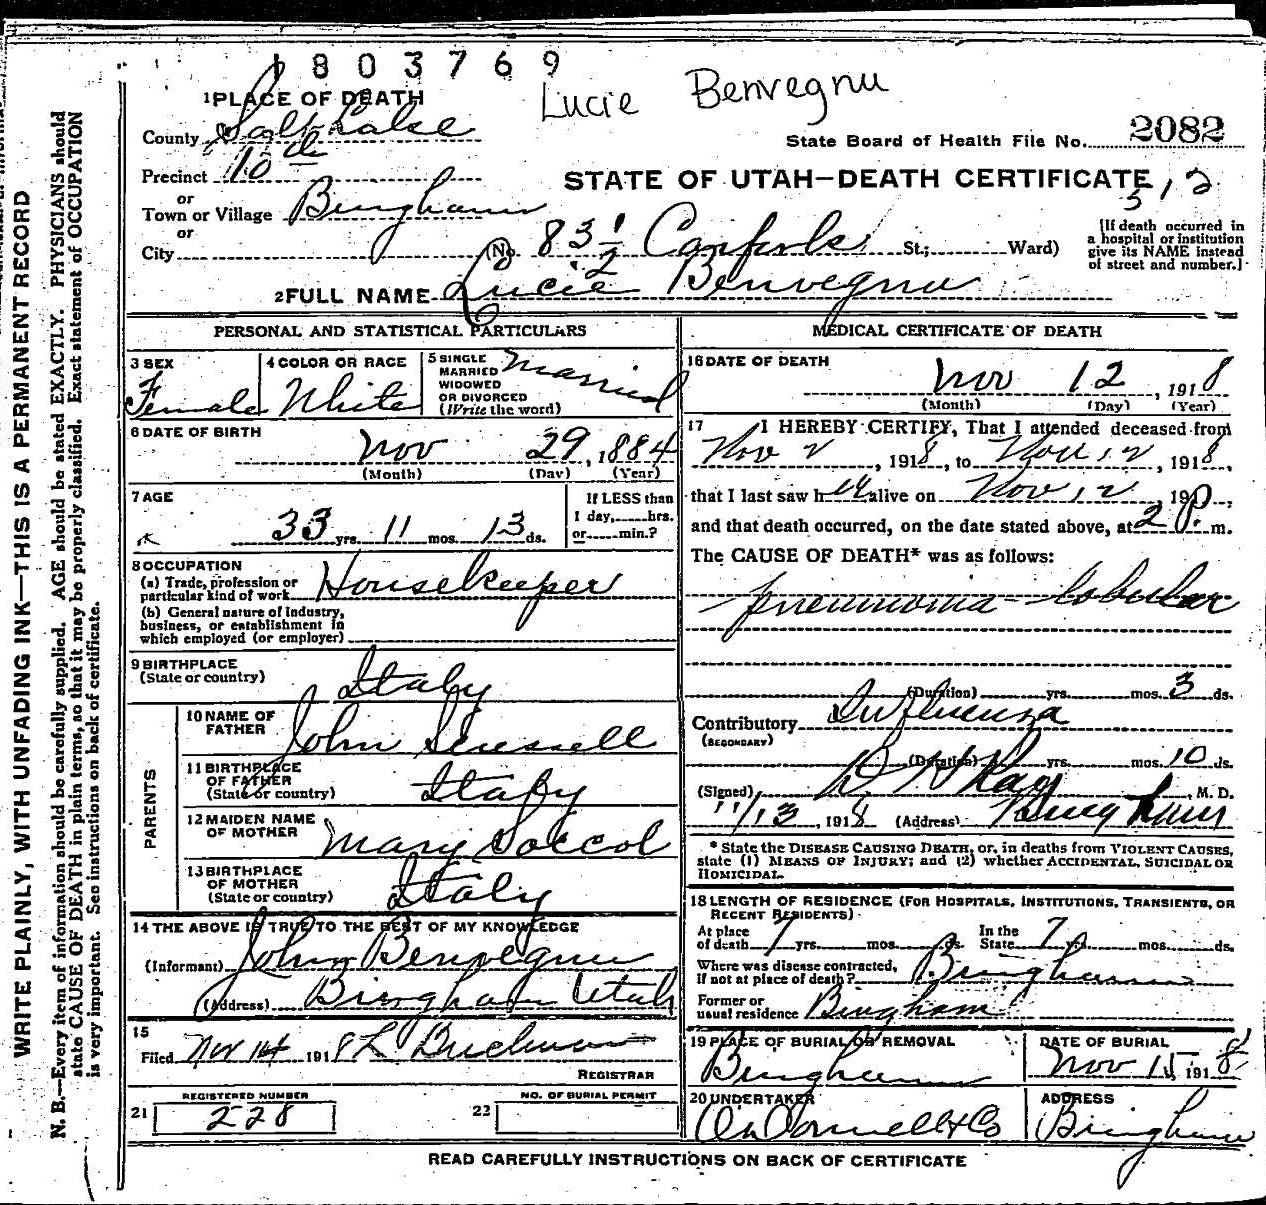 1803769
Lucie Benvegnu
1 PLACE OF DEATH
County Salt Lake
State Board of Health File No. 2082
Precinct 10th
or
Town or Village Bingham
or
City
STATE OF UTAH—DEATH CERTIFICATE
(No. 83 1/2 St.; Ward)
[If death occurred in
a hospital or institution
give its NAME instead
of street and number.]
2 FULL NAME Lucie Benvegnu
PERSONAL AND STATISTICAL PARTICULARS
3 SEX
Female
4 COLOR OR RACE
White
5 SINGLE
MARRIED
WIDOWED
OR DIVORCED
(Write the word)
Married
6 DATE OF BIRTH
Nov 29, 1884
(Month) (Day) (Year)
7 AGE
33 yrs. 11 mos. 13 ds.
If LESS than
1 day, hrs.
or min.?
8 OCCUPATION
(a) Trade, profession or
particular kind of work Housekeeper
(b) General nature of industry,
business, or establishment in
which employed (or employer)
9 BIRTHPLACE
(State or country) Italy
PARENTS
10 NAME OF
FATHER John
11 BIRTHPLACE
OF FATHER
(State or country) Italy
12 MAIDEN NAME
OF MOTHER Mary Soccol
13 BIRTHPLACE
OF MOTHER
(State or country) Italy
14 THE ABOVE IS TRUE TO THE BEST OF MY KNOWLEDGE
(Informant) John Benvegnu
(Address) Bingham Utah
15
Filed Nov 14 1918
REGISTRAR
REGISTERED NUMBER
21 228
NO. OF BURIAL PERMIT
22
MEDICAL CERTIFICATE OF DEATH
16 DATE OF DEATH
Nov 12, 1918
(Month) (Day) (Year)
17 I HEREBY CERTIFY, That I attended deceased from
Nov 2, 1918, to Nov 12, 1918,
that I last saw h alive on Nov 12, 191
and that death occurred, on the date stated above, at 2 P. m.
The CAUSE OF DEATH* was as follows:
Pneumonia - lobular
(Duration) yrs. mos. 3 ds.
Contributory Influenza
(SECONDARY)
(Duration) yrs. mos. 10 ds.
(Signed) M. D.
11/13, 1918 (Address) Bingham
* State the DISEASE CAUSING DEATH, or, in deaths from VIOLENT CAUSES,
state (1) MEANS OF INJURY; and (2) whether ACCIDENTAL, SUICIDAL OR
HOMICIDAL.
18 LENGTH OF RESIDENCE (FOR HOSPITALS, INSTITUTIONS, TRANSIENTS, OR
RECENT RESIDENTS)
At place
of death 7 yrs. mos. ds.
In the
State 7 yrs. mos. ds.
Where was disease contracted,
if not at place of death? Bingham
Former or
usual residence Bingham
19 PLACE OF BURIAL OR REMOVAL
Bingham
DATE OF BURIAL
Nov 15 1918
20 UNDERTAKER
O'Donnell & Co
ADDRESS
Bingham
READ CAREFULLY INSTRUCTIONS ON BACK OF CERTIFICATE
WRITE PLAINLY, WITH UNFADING INK—THIS IS A PERMANENT RECORD
N. B.—Every item of information should be carefully supplied. AGE should be stated EXACTLY. PHYSICIANS should
state CAUSE OF DEATH in plain terms, so that it may be properly classified. Exact statement of OCCUPATION
is very important. See instructions on back of certificate.